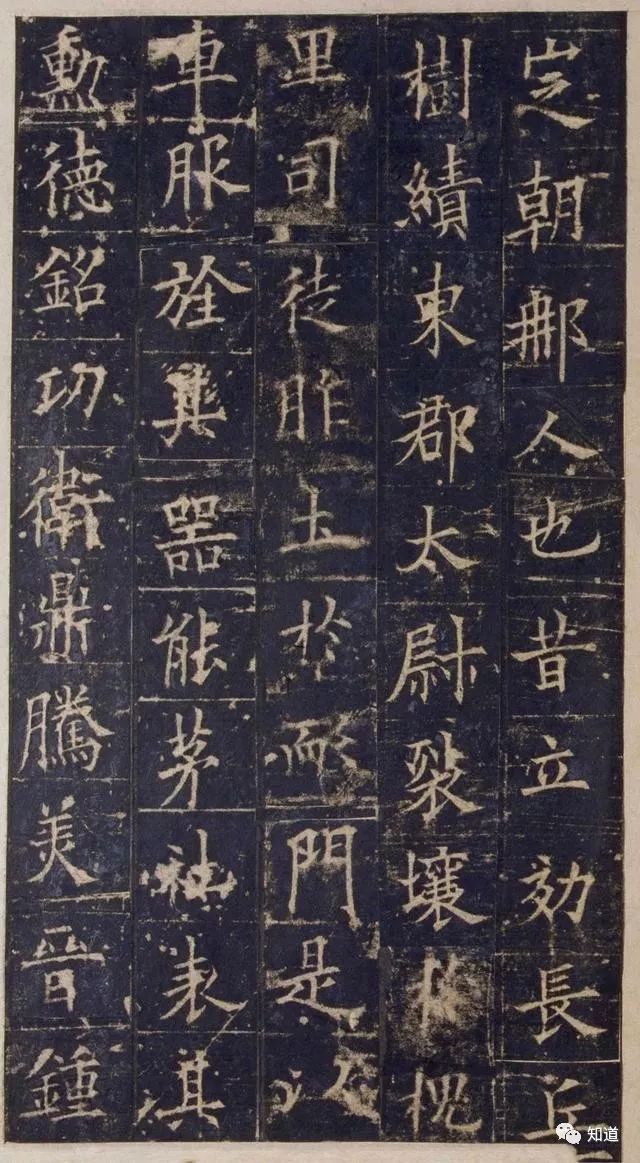 定朝那人也昔立効長丘
樹績東郡太尉裂壤於槐
里司徒胙土於耏門是以
車服旌其器能茅社表其
勳德銘功衛鼎騰美晉鍾
知道